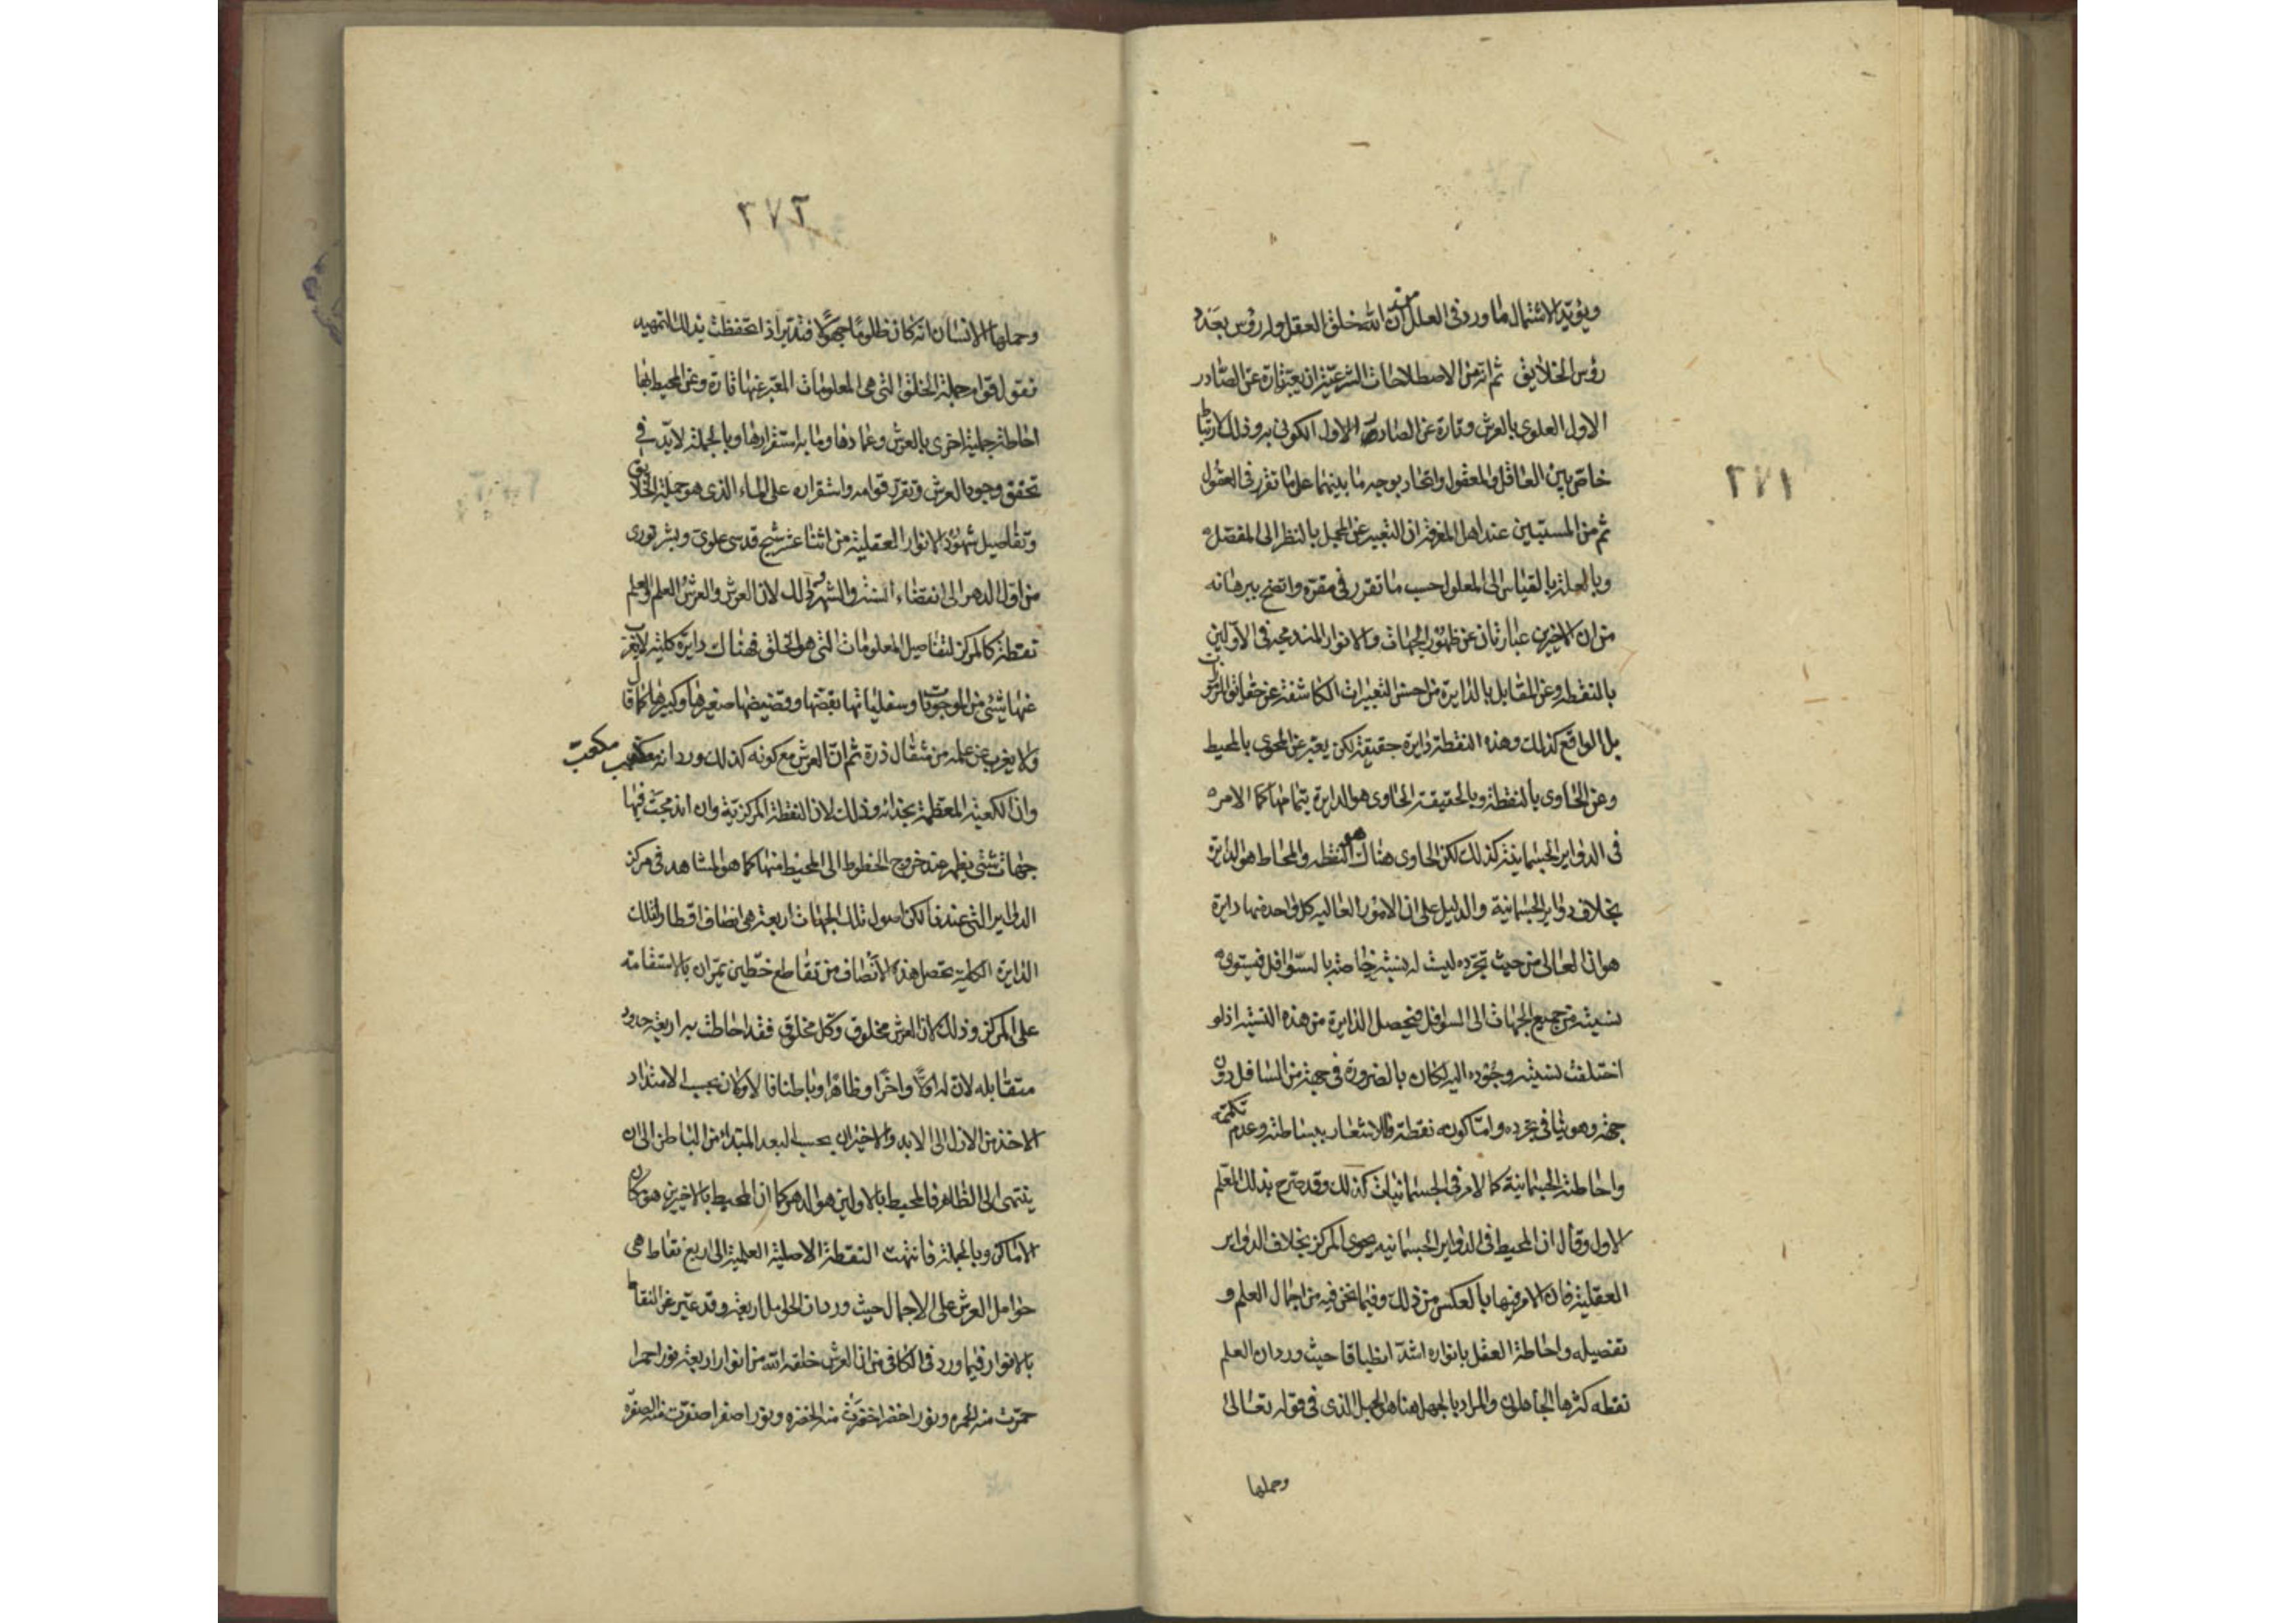 ويؤيد الاشتمال ما ورد في العلل من ان الله خلق العقل وله رؤس بعدد
رؤس الخلايق ثم انه من الاصطلاحات الشرعية ان يعبر تارة عن الصادر
الاول العلوي بالعرش وتارة عن الصادر الاول الكوني به وذلك لارتباط
خاص بين العاقل والمعقول واتحاد بوجه ما بينهما على ما تقرر في العقول
ثم من المستبين عند اهل المعرفة ان التعبير عن المجمل بالنظر الى المفصل
وبالعلة بالقياس الى المعلول حسب ما تقرر في مقره واتضح ببرهانه
من ان الاخيرين عبارتان عن ظهور الجهات والانوار المندمجة في الاولين
بالنقطة وعن المقابل بالدايرة من احسن التعبيرات الكاشفة عن حقايق
بل الواقع كذلك وهذه النقطة دايرة حقيقة لكن يعبر عن المحوي بالمحيط
وعن الحاوي بالنقطة وبالحقيقة الحاوي هو الدايرة بتمامها كما الامر
في الدواير الجسمانية كذلك لكن الحاوي هناك هو النقطة والمحاط هو الدايرة
بخلاف دواير الجسمانية والدليل على ان الامور العالية كل واحدة منها دايرة
هو ان العالي من حيث تجرده ليست له نسبة خاصة بالسوافل فيستوي
نسبته من جميع الجهات الى السوافل فيحصل الدايرة من هذه النسبة اذ لو
اختلفت نسبته وجوده اليه لكان بالضرورة في جهة من السافل دون
جهة وهو ينافي تجرده واما كونه نقطة فللاشعار ببساطته وعدم تكممه
واحاطته الجسمانية كما الامر في الجسمانيات كذلك وقد صرح بذلك المعلم
الاول وقال ان المحيط في الدواير الجسمانيه يحوي المركز بخلاف الدواير
العقلية فان الامر فيها بالعكس من ذلك وفيما نحن فيه من اجمال العلم و
تفصيله واحاطة العقل بانواره اشد انطباقا حيث ورد ان العلم
نقطه كثرها الجاهلون والمراد بالجهل هنا هو الجهل الذي في قوله تعالى
وحملها
٢٧١
٢٧٢
وحملها الانسان انه كان ظلوما جهولا فتدبر اذا تحفظت بذلك التمهيد
فنقول قوام جملة الخلق التي هي المعلومات المعبر عنها تارة وعن المحيط بها
احاطة جملية اخرى بالعرش وعمادها وما به استقرارها وبالجملة لابد في
تحقق وجود العرش وتقرر قوامه واستقراره على الماء الذي هو جملة الخلايق
وتفاصيل شهود الانوار العقلية من اثنا عشر شبح قدسي علوي وبشر نوري
من اول الدهر الى انقضاء السنة والشهر وذلك لان العرش والعرش العلم والعلم
نقطة كالمركز لتفاصيل المعلومات التي هو الخلق فهناك دايرة كلية لا يعزب
عنها شيء من الموجودات وسفلياتها بقضها وقضيضها صغيرها وكبيرها كما قال
ولا يعزب عن علمه من مثقال ذرة ثم ان العرش مع كونه كذلك ورد انه مكعب
مكعب
وان الكعبة المعظمة بحذائه وذلك لان النقطة المركزية وان اندمجت فيها
جهات شتى يظهر عند خروج الخطوط الى المحيط منها كما هو المشاهد في مركز
الدواير التي عندنا لكن اصول تلك الجهات اربعة هي انصاف اقطار لتلك
الدايرة الكلية تحصل هذه الانصاف من تقاطع خطين يمران بالاستقامة
على المركز وذلك لان العرش مخلوق وكل مخلوق فقد احاطت به اربعة حدود
متقابله لان له اولا واخرا وظاهرا وباطنا فالاولان بحسب الامتداد
الاخذ من الازل الى الابد والاخيران بحسب البعد المبتدأ من الباطن الى ان
ينتهي الى الظاهر فالمحيط بالاولين هو الدهر كما ان المحيط بالاخيرين هو مكان
الاماكن وبالجملة فانتهت النقطة الاصلية العلمية الى اربع نقاط هي
حوامل العرش على الاجمال حيث ورد ان الحوامل اربعة وقد عبر عن النقاط
بالانوار فيما ورد في الكافي من ان العرش خلقه الله من انوار اربعة نور احمر
احمرت منه الحمرة ونور اخضر اخضرت منه الخضرة ونور اصفر اصفرت منه الصفرة